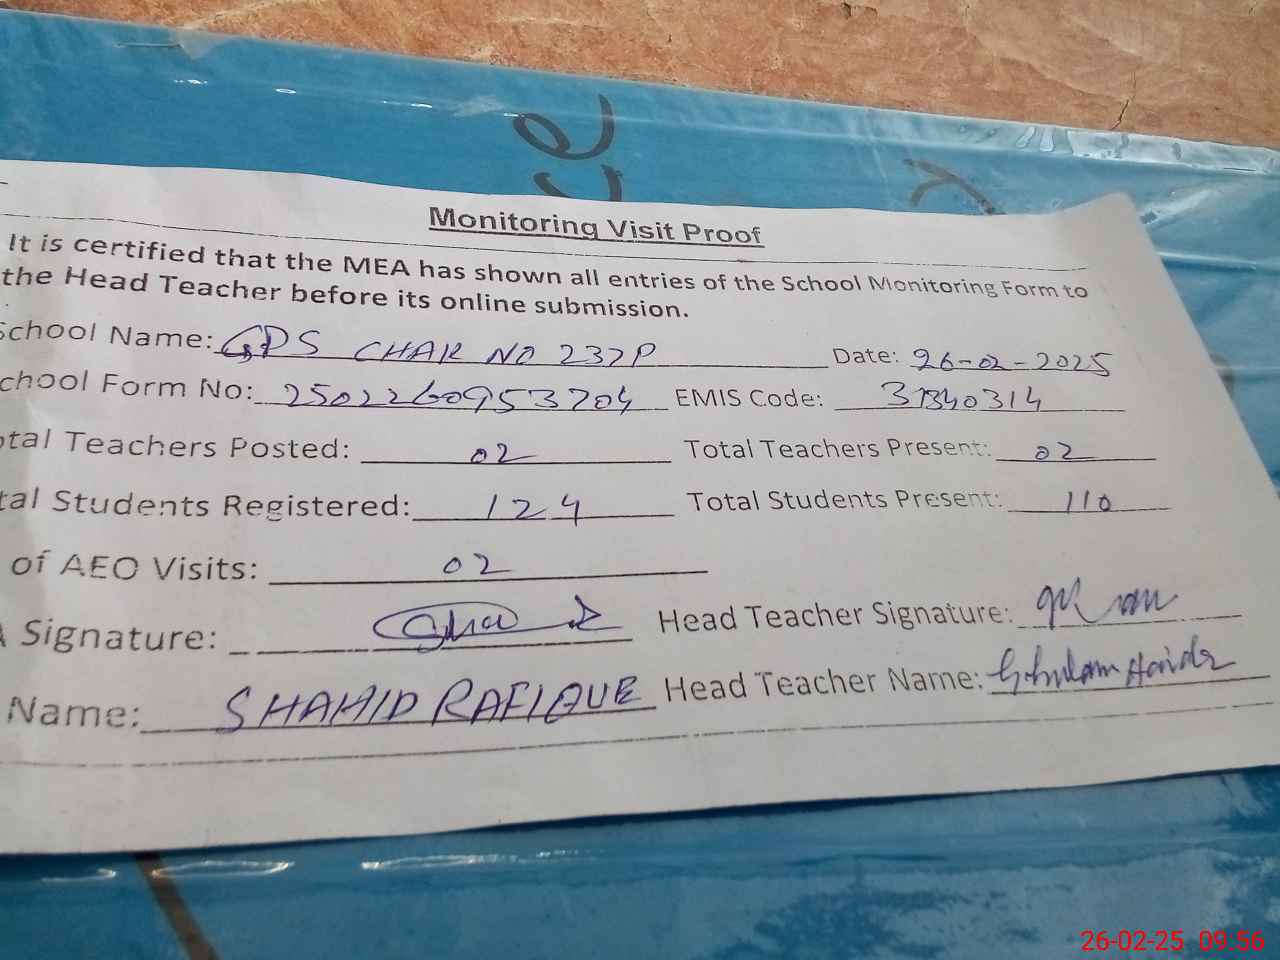 Monitoring Visit Proof
It is certified that the MEA has shown all entries of the School Monitoring Form to
the Head Teacher before its online submission.
School Name: GPS CHAK NO 237P Date: 26-02-2025
chool Form No: 2502260953704 EMIS Code: 31340314
otal Teachers Posted: 02 Total Teachers Present: 02
tal Students Registered: 124 Total Students Present: 110
of AEO Visits: 02
A Signature: Head Teacher Signature:
Name: SHAHID RAFIQUE Head Teacher Name: Ghulam Haider
26-02-25 09:56